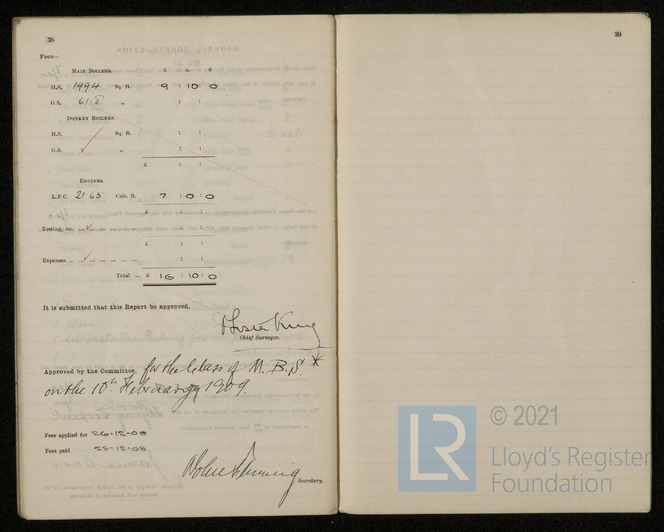 38
Fees—
MAIN BOILERS. £ s d
H.S. 1994 Sq. ft. 9 : 10 : 0
G.S. 61.8 „ : :
DONKEY BOILERS.
H.S. Sq. ft. : :
G.S. „ : :
£ : :
ENGINES.
L.P.C. 21.65 Cub. ft. 7 : 0 : 0
£ : :
Testing, &c. ... : :
£ : :
Expenses ... : :
Total ... £ 16 : 10 : 0
It is submitted that this Report be approved,
King
Chief Surveyor.
Approved by the Committee, for the Class of M.B.S.*
on the 10th February 1909.
Fees applied for 26-12-08
Fees paid 28-12-08
Secretary.
39
© 2021
LR
Lloyd's Register
Foundation